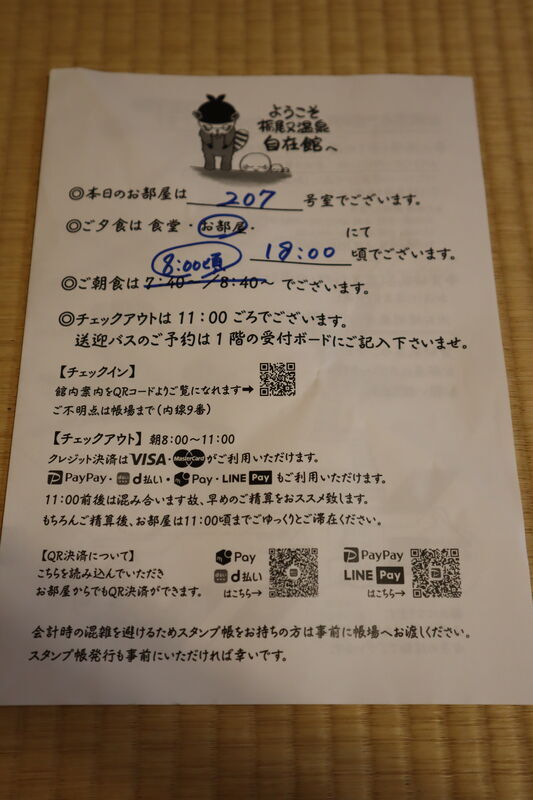 ようこそ
栃尾又温泉
自在館へ
◎本日のお部屋は 207 号室でございます。
◎ご夕食は 食堂・お部屋・ にて
18:00 頃でございます。
8:00頃
◎ご朝食は 7:40~/8:40~ でございます。
◎チェックアウトは11:00ごろでございます。
送迎バスのご予約は1階の受付ボードにご記入下さいませ。
【チェックイン】
館内案内をQRコードよりご覧になれます➡
ご不明点は帳場まで(内線9番)
【チェックアウト】朝8:00~11:00
クレジット決済はVISA・MasterCardがご利用いただけます。
PayPay・d払い・Pay・LINE Payもご利用いただけます。
11:00前後は混み合います故、早めのご精算をおススメ致します。
もちろんご精算後、お部屋は11:00頃までごゆっくりとご滞在ください。
【QR決済について】
こちらを読み込んでいただき
お部屋からでもQR決済ができます。
Pay
d払い
はこちら→
PayPay
LINE Pay
はこちら→
会計時の混雑を避けるためスタンプ帳をお持ちの方は事前に帳場へお渡しください。
スタンプ帳発行も事前にいただければ幸いです。